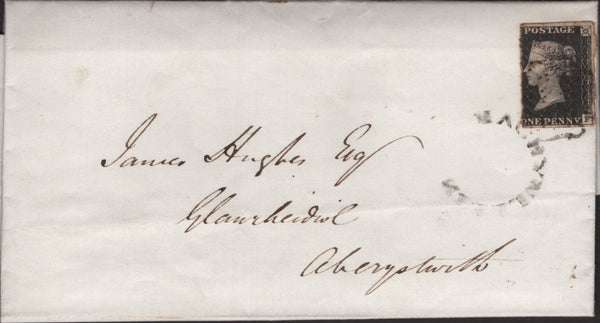 POSTAGE
ONE PENNY
James Hughes Esq
Glanrheidiol
Aberystwith